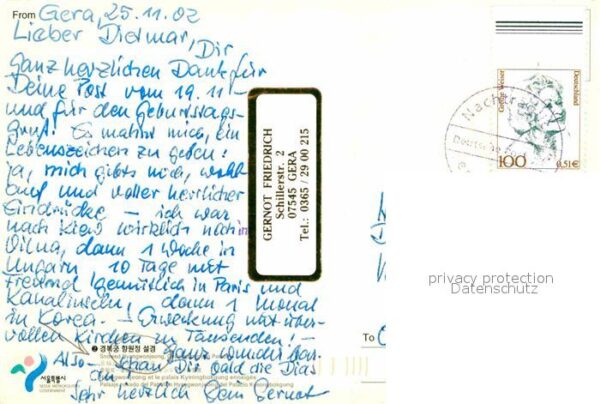 From Gera, 25.11.02
Lieber Dietmar, Dir
ganz herzlichen Dank für
Deine Post vom 19.11.
und für den Geburtstags-
gruß. Es mahnt mich, ein
Lebenszeichen zu geben:
ja, mich gibts noch, wohl-
auf und voller herrlicher
Eindrücke – ich war
nach Kiew wirklich noch in
Vilna, dann 1 Woche in
Ungarn, 10 Tage mit
Freund gemütlich in Paris und
Kanalinseln, dann 1 Monat
in Korea. – Erweckung mit über-
vollen Kirchen zu Tausenden! –
ganz wunderbar.
Also – schau Dir bald die Dias
an
Sehr herzlich Dein Gernot
GERNOT FRIEDRICH
Schillerstr. 2
07545 GERA
Tel.: 0365 / 29 00 215
Grethe Weiser
Deutschland
100
0,51€
Deutsche
To
privacy protection
Datenschutz
❷ 경복궁 향원정 설경
서울특별시
SEOUL METROPOLITAN
GOVERNMENT